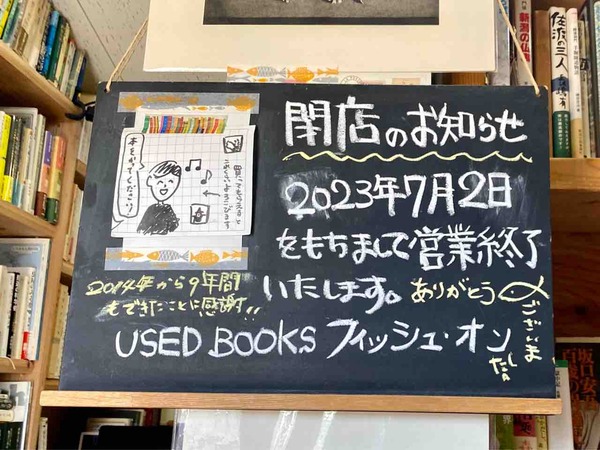 閉店のお知らせ
2023年7月2日
をもちまして営業終了
いたします。
ありがとう
ございま
した
2014年から9年間
もできたことに感謝!!
USED BOOKS フィッシュ・オン
本をかってください
佐渡の三人
新潟の仏像
坂口安吾